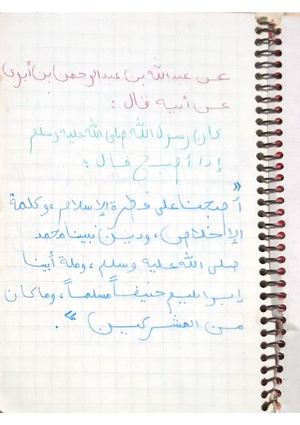 عن عبد الله بن عبد الرحمن بن أبزى
عن أبيه قال :
كان رسول الله صلى الله عليه وسلم
إذا أصبح قال :
«
أصبحنا على فطرة الإسلام ، وكلمة
الإخلاص ، ودين نبينا محمد
صلى الله عليه وسلم ، وملة أبينا
إبراهيم حنيفاً مسلماً ، وما كان
من المشركين » .